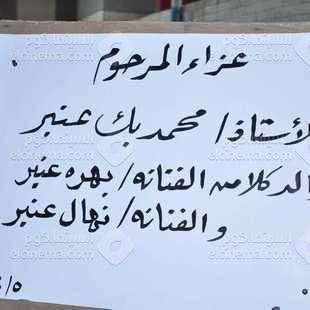 عزاء المرحوم
الأستاذ/ محمد بك عنبر
والد كلا من الفنانه/ زهره عنبر
والفنانه/ نهال عنبر
٥/
السينما.كوم
elcinema.com